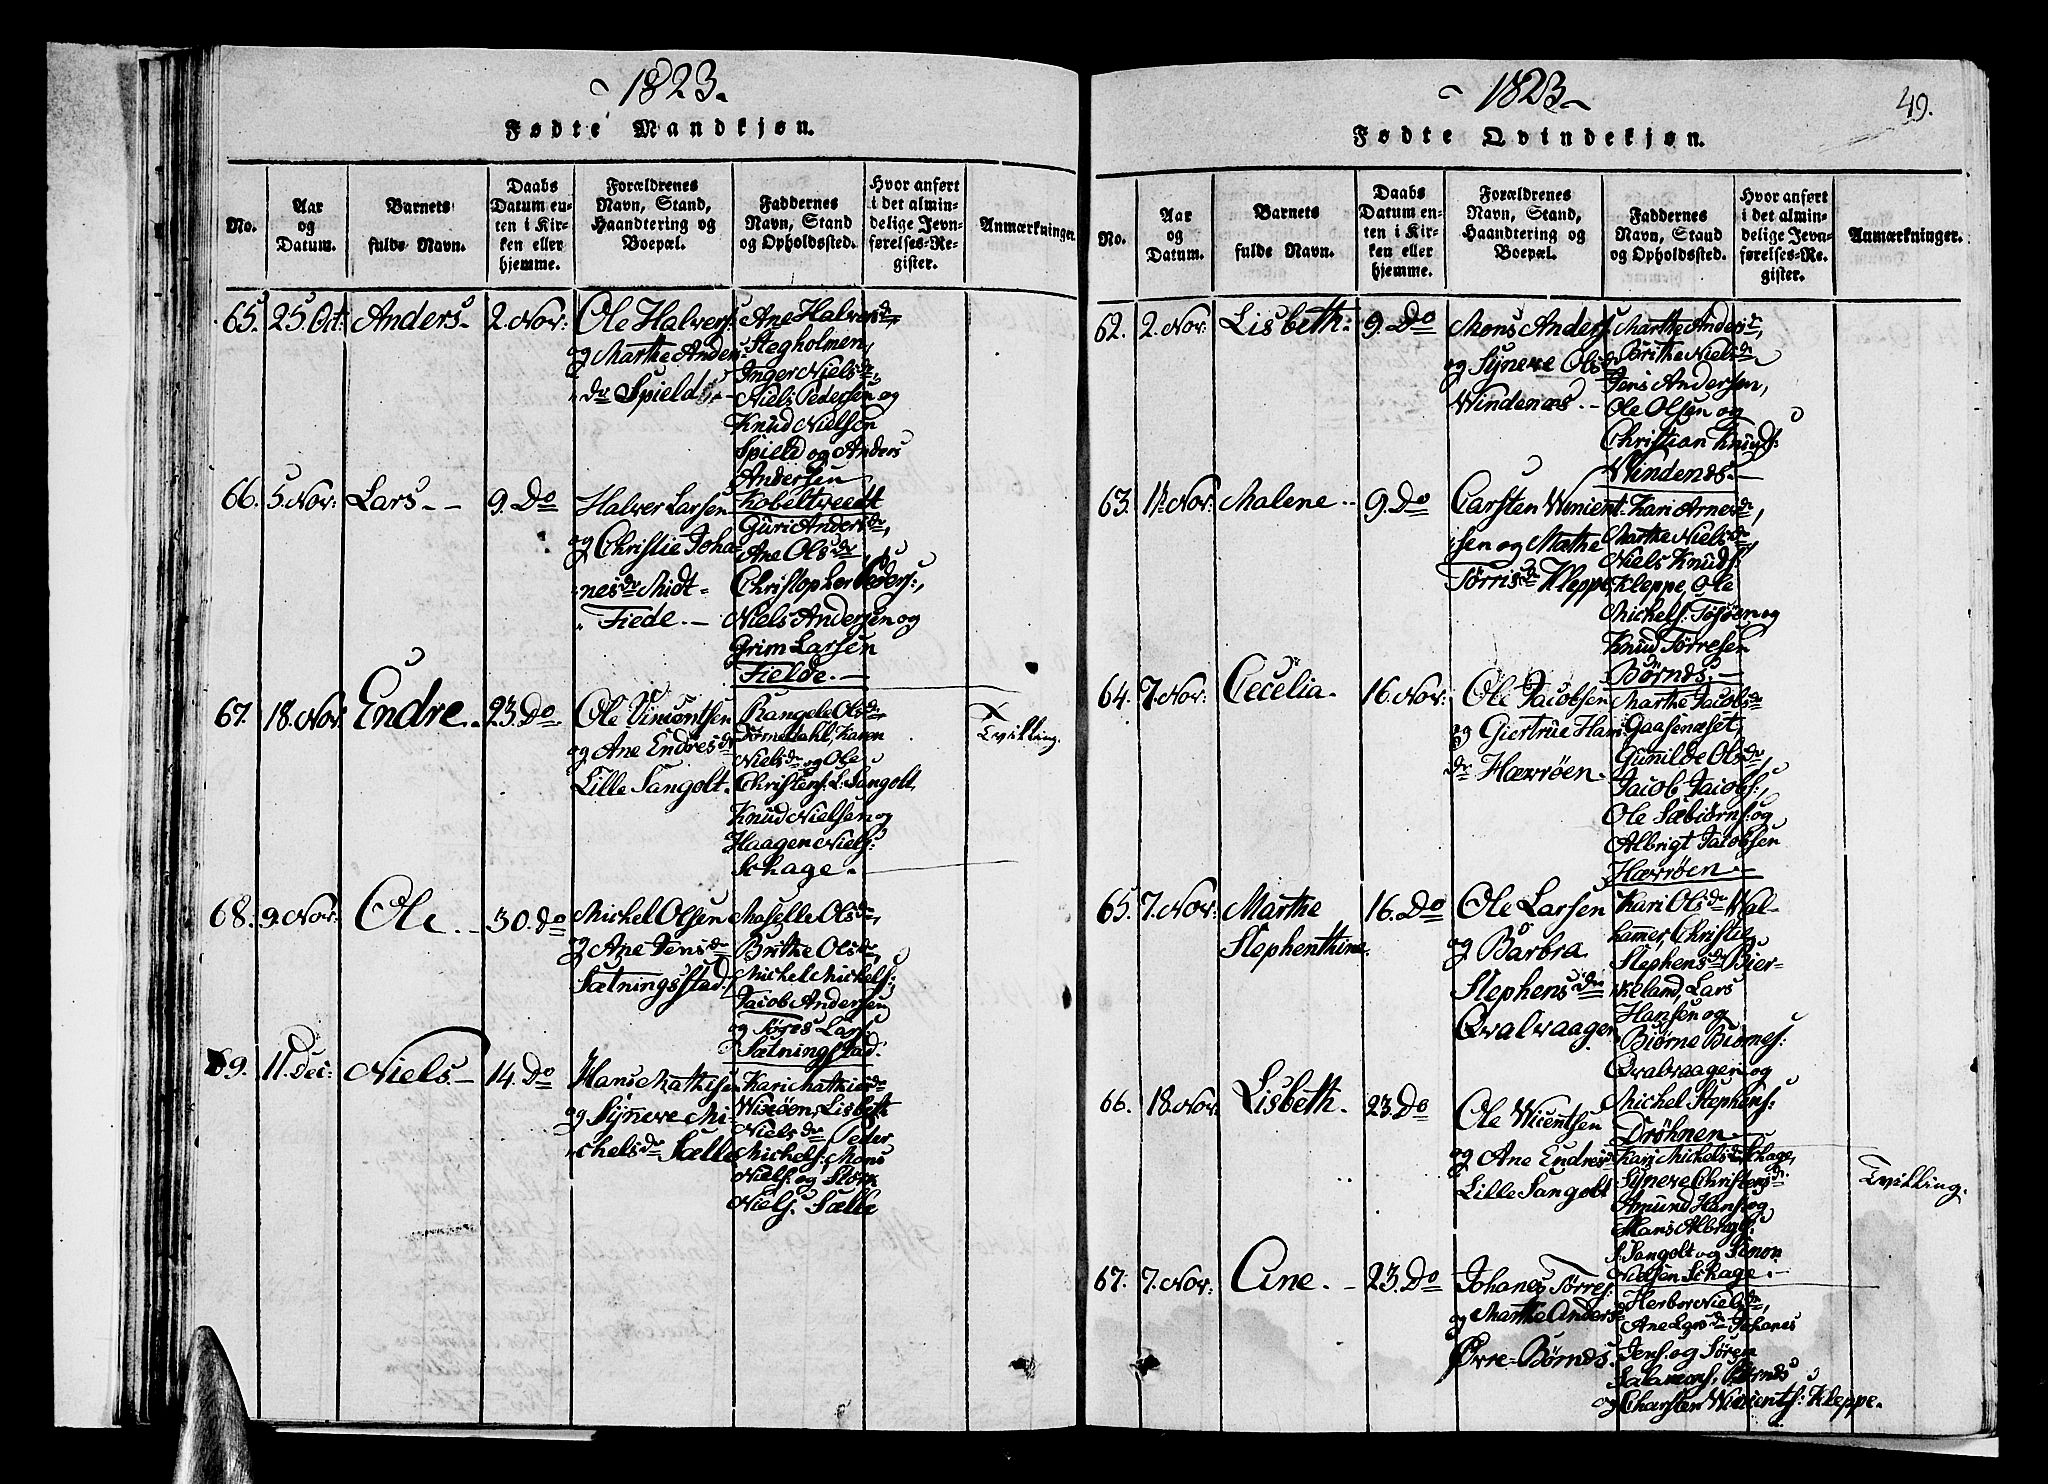 1823.
Fødte Mandkjøn.
No.
Aar
og
Datum.
Barnets
fulde Navn.
Daabs
Datum en-
ten i Kir-
ken eller
hjemme.
Forældrenes
Navn, Stand,
Haandtering og
Boepæl.
Faddernes
Navn, Stand
og Opholdssted.
Hvor anført
i det almin-
delige Jevn-
førelses-Re-
gister.
Anmærkninger.
65. 25. Oct: Anders 2. Nov:
Ole Halvers:
og Marthe Anders
dr Spield
Ane Halversdr
Stegholmen,
Inger Nielsdr,
Niels Pedersen og
Knud Nielsen
Spield og Anders
Andersen
Kobeltveedt
66. 5. Nov: Lars 9. Do
Halver Larsen
og Christie Joha-
nesdr Midt-
Fiede.
Guri Andersdr,
Ane Olsdr
Christopher Peders:,
Niels Andersen og
Grim Larsen
Fielde.
67. 18. Nov Endre 23. Do
Ole Vincentsen
og Ane Endresdr
Lille Sangolt.
Rangele Olsdr
Tørnedahl, Karen
Nielsdr og Ole
Christens: L: Sangolt,
Knud Nielsen og
Haagen Niels:
Schage.
Tvilling.
68. 9. Nov: Ole 30. Do
Michel Olsen
og Ane Jensdr
Sætningsstad.
Maselle Olsdr,
Brithe Olsdr,
Michel Michels:,
Jacob Andersen
og Lars
Sætningstad.
69. 11. Dec: Niels 14. Do
Hans Mathisen
og Synneve Mi-
chelsdr Sælle
Kari Mathiasdr
Lisbeth
Nielsdr Peder
Michels: Mons
Niels: og Stork
Niels: Sælle
1823
49.
Fødte Qvindekjøn.
No.
Aar
og
Datum.
Barnets
fulde Navn.
Daabs
Datum en-
ten i Kir-
ken eller
hjemme.
Forældrenes
Navn, Stand,
Haandtering og
Boepæl.
Faddernes
Navn, Stand
og Opholdssted.
Hvor anført
i det almin-
delige Jevn-
førelses-Re-
gister.
Anmærkninger.
62. 2. Nov: Lisbeth: 9. Do
Mons Anders
og Synneve Olsdr
Windenæs.
Marthe Andersdr,
Brithe Nielsdr
Jens Andersen,
Ole Olsen og
Christian Knuds:
Windenæs.
63. Nov: Malene 9. Do
Carsten Wincent-
sen og Mathe
Tørrisdr Kleppe
Kari Arnesdr,
Marthe Nielsdr
Niels Knuds:
Kleppe, Ole
Michels: Tøsøen og
Knud Tørresen
Børnæs.
64. 7. Nov: Cecelia. 16. Nov:
Ole Jacobsen
og Giertrue Hans
dr Hævrøen.
Marthe Jacobsdr
Gaasenæset,
Gunnilde Olsdr,
Jacob Jacobs:,
Ole Sæbiørns: og
Albrigt Jacobsen
Hævrøen
65. 7. Nov: Marthe
Stephenthine. 16. Do
Ole Larsen
og Barbra
Stephensdr
Qvalvaagen
Kari Olsdr Wal-
hammer, Christie
Stephensdr Bier-
keland, Lars
Hansen og
Biørne Biørnes:
Qvalvaagen og
Michel Stephens:
Drøhnen
66. 18. Nov. Lisbeth. 23. Do
Ole Wicentsen
og Ane Endresdr
Lille Sangolt
Kari Michelsdr Schage,
Synneve Christensdr
Amund Hans: og
Hans Albrigts:
Sangolt og Simon
Nielsen Schage.
Tvilling.
67. 7. Nov: Ane. 23. Do
Johanes Tørres:
og Marthe Andersdr
Øvre-Børnæs.
Herbor Nielsdr,
Ane Larsdr Johanes
Jens: og Søren
Salamons: Børnæs
og Charsten Wincents: Kleppe.